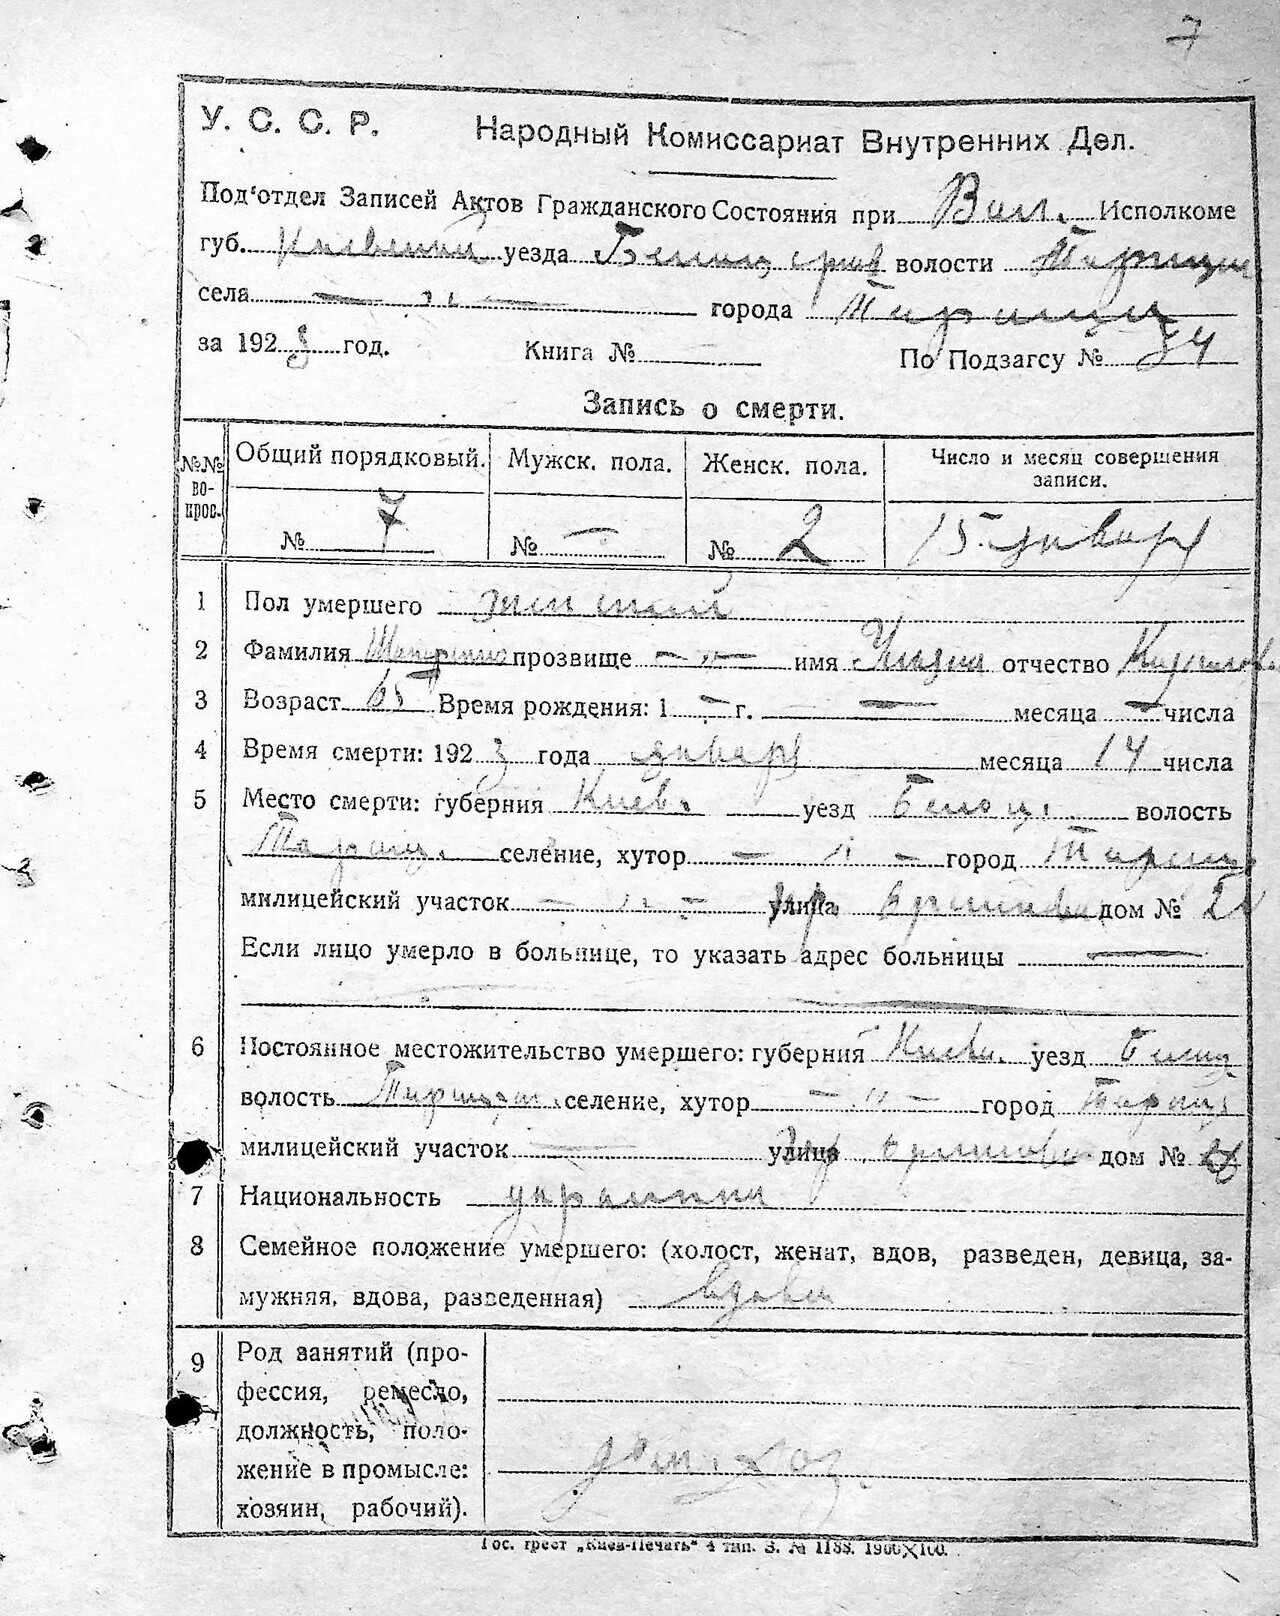 7
У. С. С. Р. Народный Комиссариат Внутренних Дел.
Под'отдел Записей Актов Гражданского Состояния при Вол. Исполкоме
губ. Киевской уезда Белоцерков волости Таращан
села — „ — города Таращи
за 1923 год. Книга № По Подзагсу № 34
Запись о смерти.
№№ вопрос. Общий порядковый. Мужск. пола. Женск. пола. Число и месяц совершения записи.
№ 7 № — № 2 15 январ
1 Пол умершего женский
2 Фамилия прозвище — „ — имя отчество
3 Возраст 65 Время рождения: 1 — г. — месяца — числа
4 Время смерти: 1923 года январ месяца 14 числа
5 Место смерти: губерния Киев. уезд Белоц. волость
Таращ. селение, хутор — „ — город Таращ
милицейский участок — „ — улица дом №
Если лицо умерло в больнице, то указать адрес больницы —
6 Постоянное местожительство умершего: губерния Киевск. уезд Белоц
волость Таращан. селение, хутор — „ — город Таращ
милицейский участок — улица дом №
7 Национальность украинка
8 Семейное положение умершего: (холост, женат, вдов, разведен, девица, за-
мужняя, вдова, разведенная) вдова
9 Род занятий (про-
фессия, ремесло,
должность, поло-
жение в промысле: дом. хоз.
хозяин, рабочий).
Гос. трест „Киев-Печать" 4 тип. З. № 1188. 1900×100.